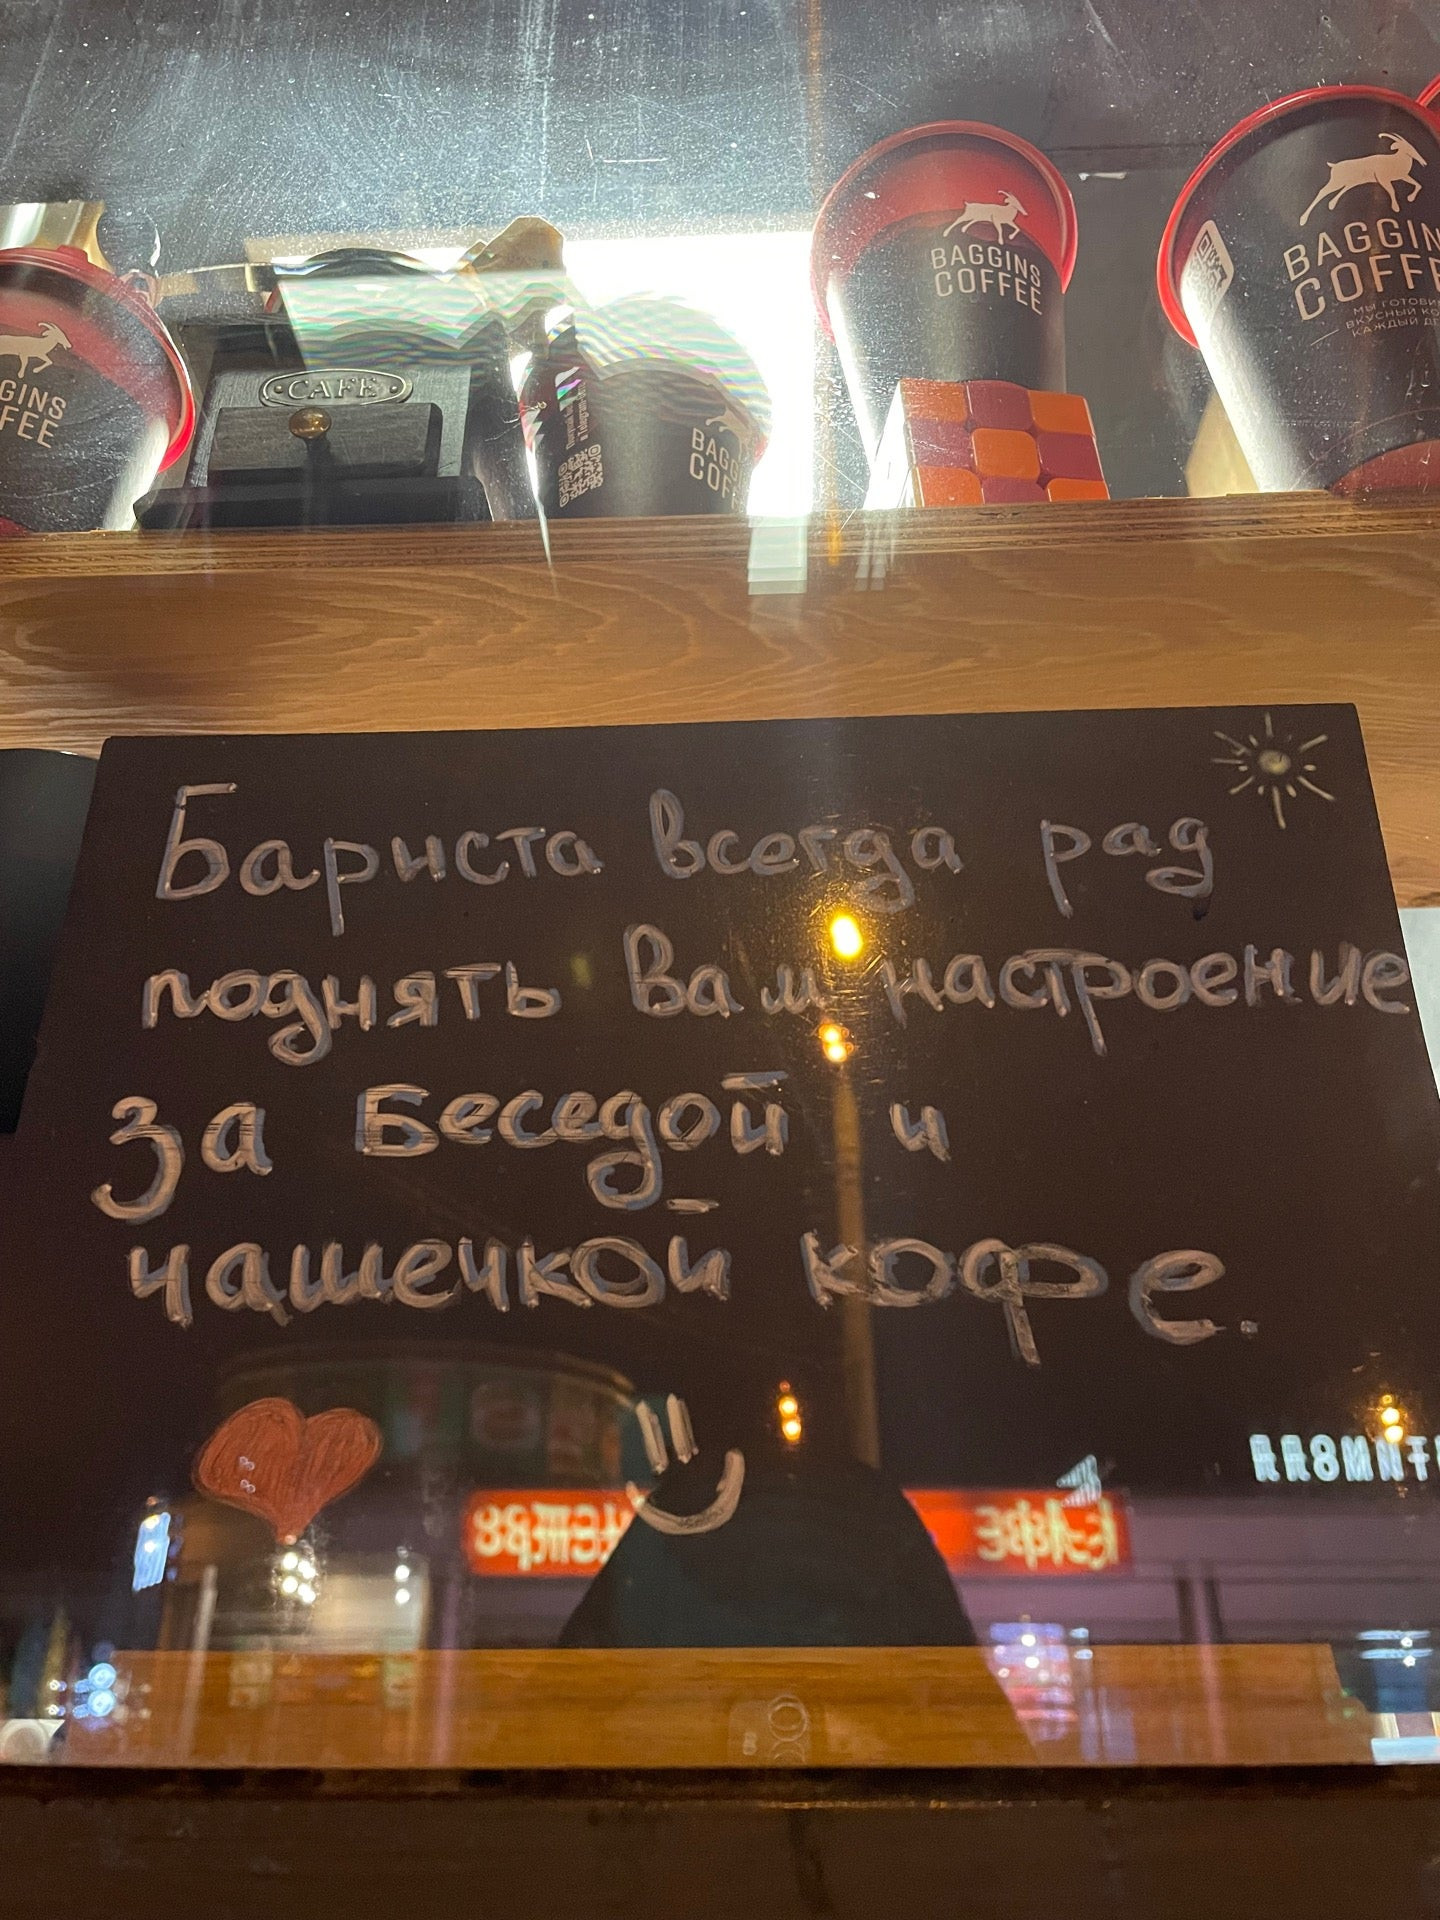 BAGGINS
COFFEE
BAGGIN
COFFE
МЫ ГОТОВИ
ВКУСНЫЙ КО
КАЖДЫЙ Д
GINS
FEE
CAFE
BAGG
COF
Бариста всегда рад
поднять Вам настроение
за беседой и
чашечкой кофе.